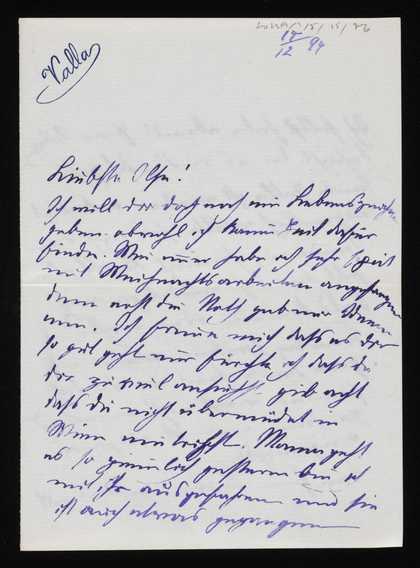 Valla
17/12 94
Liebste Else!
Ich will dir doch noch ein Lebenszeichen
geben obwohl ich kaum Zeit dafür
finde. Wie immer habe ich sehr spät
mit Weihnachtsarbeiten angefangen
denn erst die Noth gab mir Ideen
ein. Ich freue mich dass es dir
so gut geht nur fürchte ich dass du
dir zu viel gib acht
dass du nicht übermüdet in
Wien eintriffst. Mama geht
es so ziemlich gestern bin ich
mit ihr ausgefahren und sie
ist auch etwas gegangen